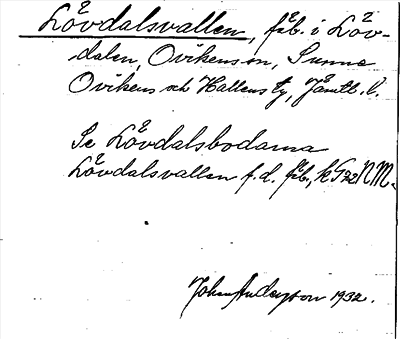 Lövdalsvallen, fäb. i Löv-
dalen, Ovikens sn, Sunne
Ovikens och Hallens tg, Jämtl. l.
Se Lövdalsbodarna
Lövdalsvallen f.d. fäb., k G72NM.
Johan Anderson 1932.